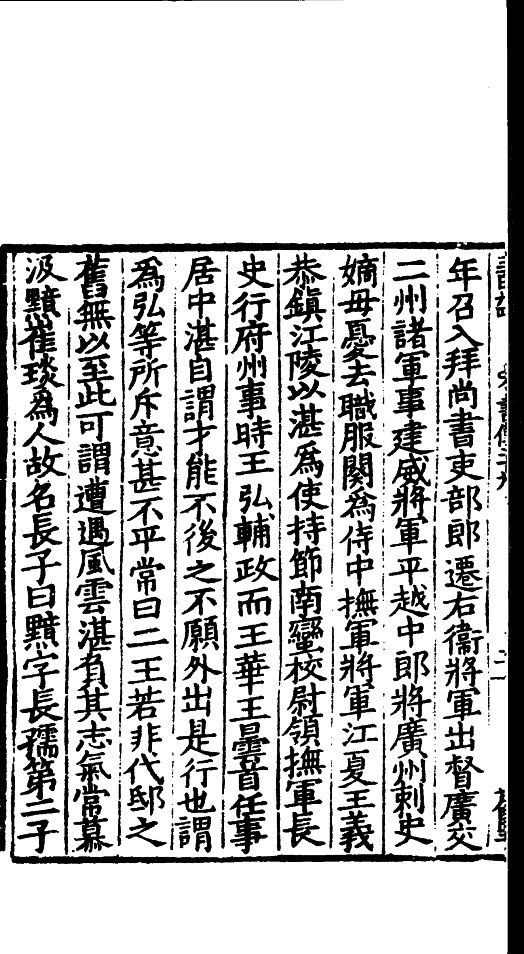 年召入拜尚書吏部郎遷右衞將軍出督廣交
二州諸軍事建威將軍平越中郎將廣州刺史
嫡母憂去職服闋爲侍中撫軍將軍江夏王義
恭鎭江陵以湛爲使持節南蠻校尉領撫軍長
史行府州事時王弘輔政而王華王曇首任事
居中湛自謂才能不後之不願外出是行也謂
爲弘等所斥意甚不平常曰二王若非代邸之
舊無以至此可謂遭遇風雲湛負其志氣常慕
汲黯崔琰爲人故名長子曰黯字長孺第二子